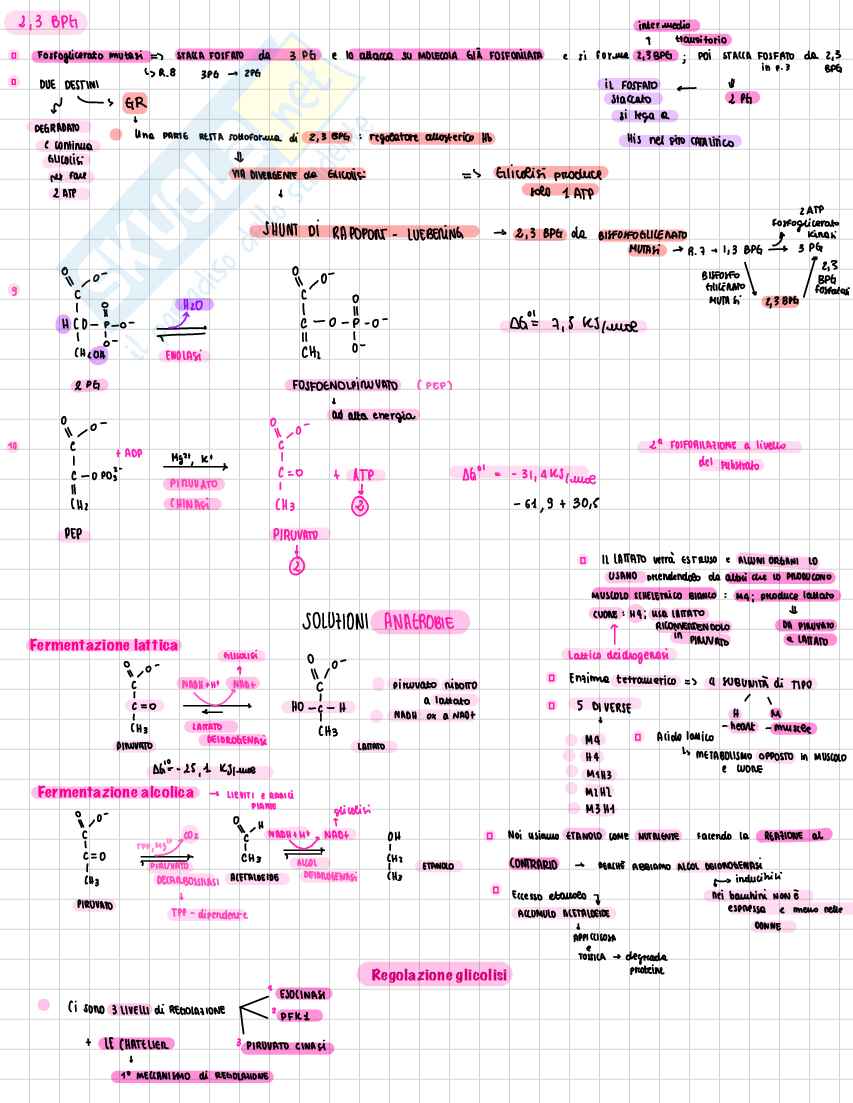 2,3 BPG
intermedio
transitorio
Fosfoglicerato mutasi => STACCA FOSFATO da 3 PG e lo attacca su MOLECOLA GIÀ FOSFORILATA e si forma 2,3 BPG ; POI STACCA FOSFATO da 2,3 BPG
in P.3
↳ R.8 3PG → 2PG
2 PG
IL FOSFATO
staccato
si lega a
His nel sito CATALITICO
DUE DESTINI
→ GR
DEGRADATO
e continua
GLICOLISI
per fare
2 ATP
Una PARTE RESTA sottoforma di 2,3 BPG : regolatore allosterico Hb
VIA DIVERGENTE da GLICOLISI
=> Glicolisi produce
solo 1 ATP
SHUNT DI RAPOPORT - LUEBERING → 2,3 BPG da BISFOSFOGLICERATO
MUTASI → R.7 → 1,3 BPG → 3 PG
2 ATP
Fosfoglicerato
kinasi
BISFOSFO
GLICERATO
MUTASI
2,3 BPG
2,3
BPG
fosfatasi
9
O O⁻
C
H C O – P – O⁻
O
O⁻
CH₂OH
2 PG
H₂O
ENOLASI
O O⁻
C
C – O – P – O⁻
O
O⁻
CH₂
FOSFOENOLPIRUVATO (PEP)
ad alta energia
ΔG°' = 7,5 KJ/mol
10
O O⁻
C
C – O PO₃²⁻
CH₂
PEP
+ ADP
Mg²⁺, K⁺
PIRUVATO
CHINASI
O O⁻
C
C = O
CH₃
PIRUVATO
2
+ ATP
2
ΔG°' = - 31,4 KJ/mol
- 61,9 + 30,5
2ª FOSFORILAZIONE a livello
del substrato
IL LATTATO verrà ESTRUSO e ALCUNI ORGANI LO
USANO prendendolo da altri che lo PRODUCONO
MUSCOLO SCHELETRICO BIANCO : M4; produce lattato
DA PIRUVATO
a LATTATO
CUORE : H4; usa LATTATO
RICONVERTENDOLO
in PIRUVATO
Lattico deidrogenasi
Enzima tetramerico => 4 SUBUNITÀ di TIPO
H M
-heart -muscle
5 DIVERSE
M4
H4
M1H3
M2H2
M3H1
Acido lattico
↳ METABOLISMO OPPOSTO IN MUSCOLO
e CUORE
SOLUZIONI ANAEROBIE
Fermentazione lattica
O O⁻
C
C = O
CH₃
PIRUVATO
GLICOLISI
NADH+H⁺ NAD+
LATTATO
DEIDROGENASI
O O⁻
C
HO – C – H
CH₃
LATTATO
piruvato ridotto
a lattato
NADH ox a NAD+
ΔG°' = - 25,1 KJ/mol
Fermentazione alcolica → LIEVITI e RADICI
PIANTE
O O⁻
C
C = O
CH₃
PIRUVATO
TPP, Mg²⁺ CO₂
PIRUVATO
DECARBOSSILASI
TPP - dipendente
O H
C
CH₃
ACETALDEIDE
glicolisi
NADH+H⁺ NAD+
ALCOL
DEIDROGENASI
OH
CH₂
CH₃
ETANOLO
Noi usiamo ETANOLO come NUTRIENTE facendo la REAZIONE al
CONTRARIO → PERCHÉ ABBIAMO ALCOL DEIDROGENASI
→ inducibili
Nei bambini NON È
espressa e meno nelle
DONNE
Eccesso etanolo
ACCUMULO ACETALDEIDE
APPICCICOSA
e
TOSSICA → degrada
proteine
Regolazione glicolisi
Ci sono 3 LIVELLI di REGOLAZIONE
1 ESOCINASI
2 PFK1
3 PIRUVATO CINASI
+ LE CHATELIER
1° MECCANISMO di REGOLAZIONE
SKUOLA.net
il paradiso dello studente